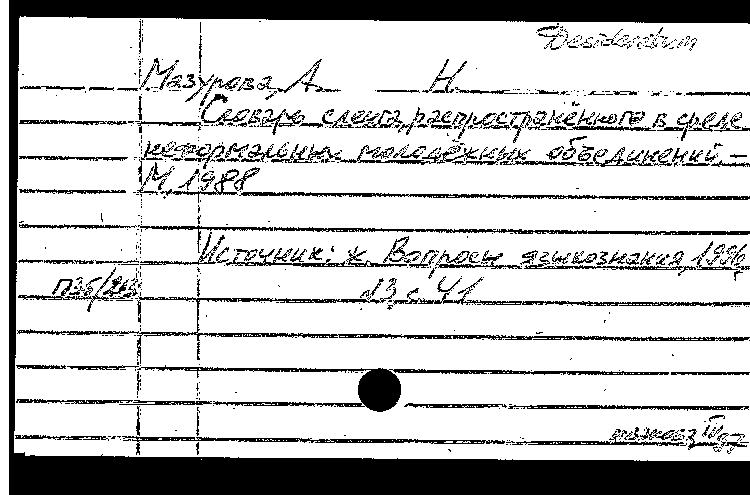 Desideratum
Мазурова, А. Н.
Словарь сленга, распространённого в среде
неформальных молодёжных объединений. –
М, 1988
Источник: ж. Вопросы языкознания, 1996,
П36/203
с 41